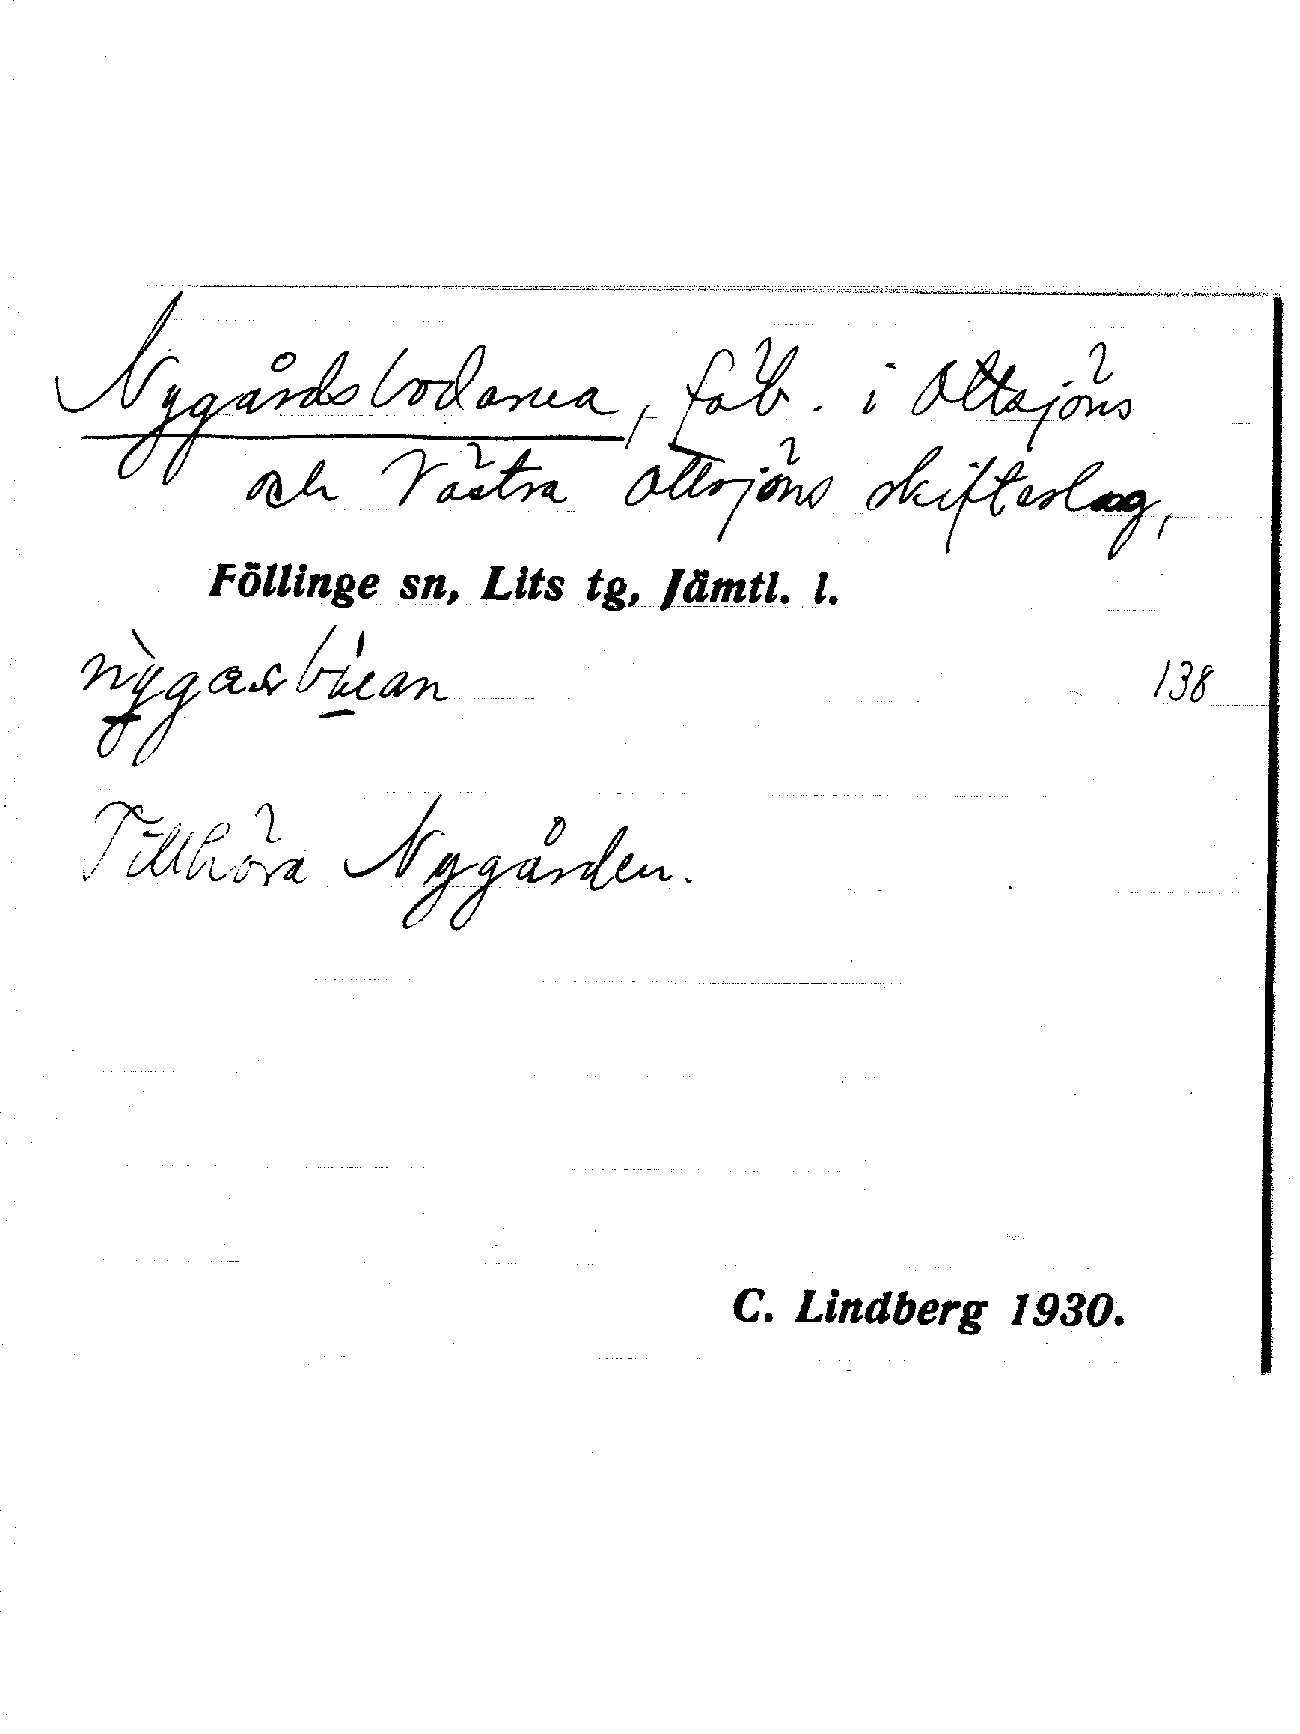 Nygårdsbodarna, fäb. i Ottsjöns
och Västra Ottsjöns skifteslag,
Föllinge sn, Lits tg, Jämtl. l.
138
Tillhöra Nygården.
C. Lindberg 1930.